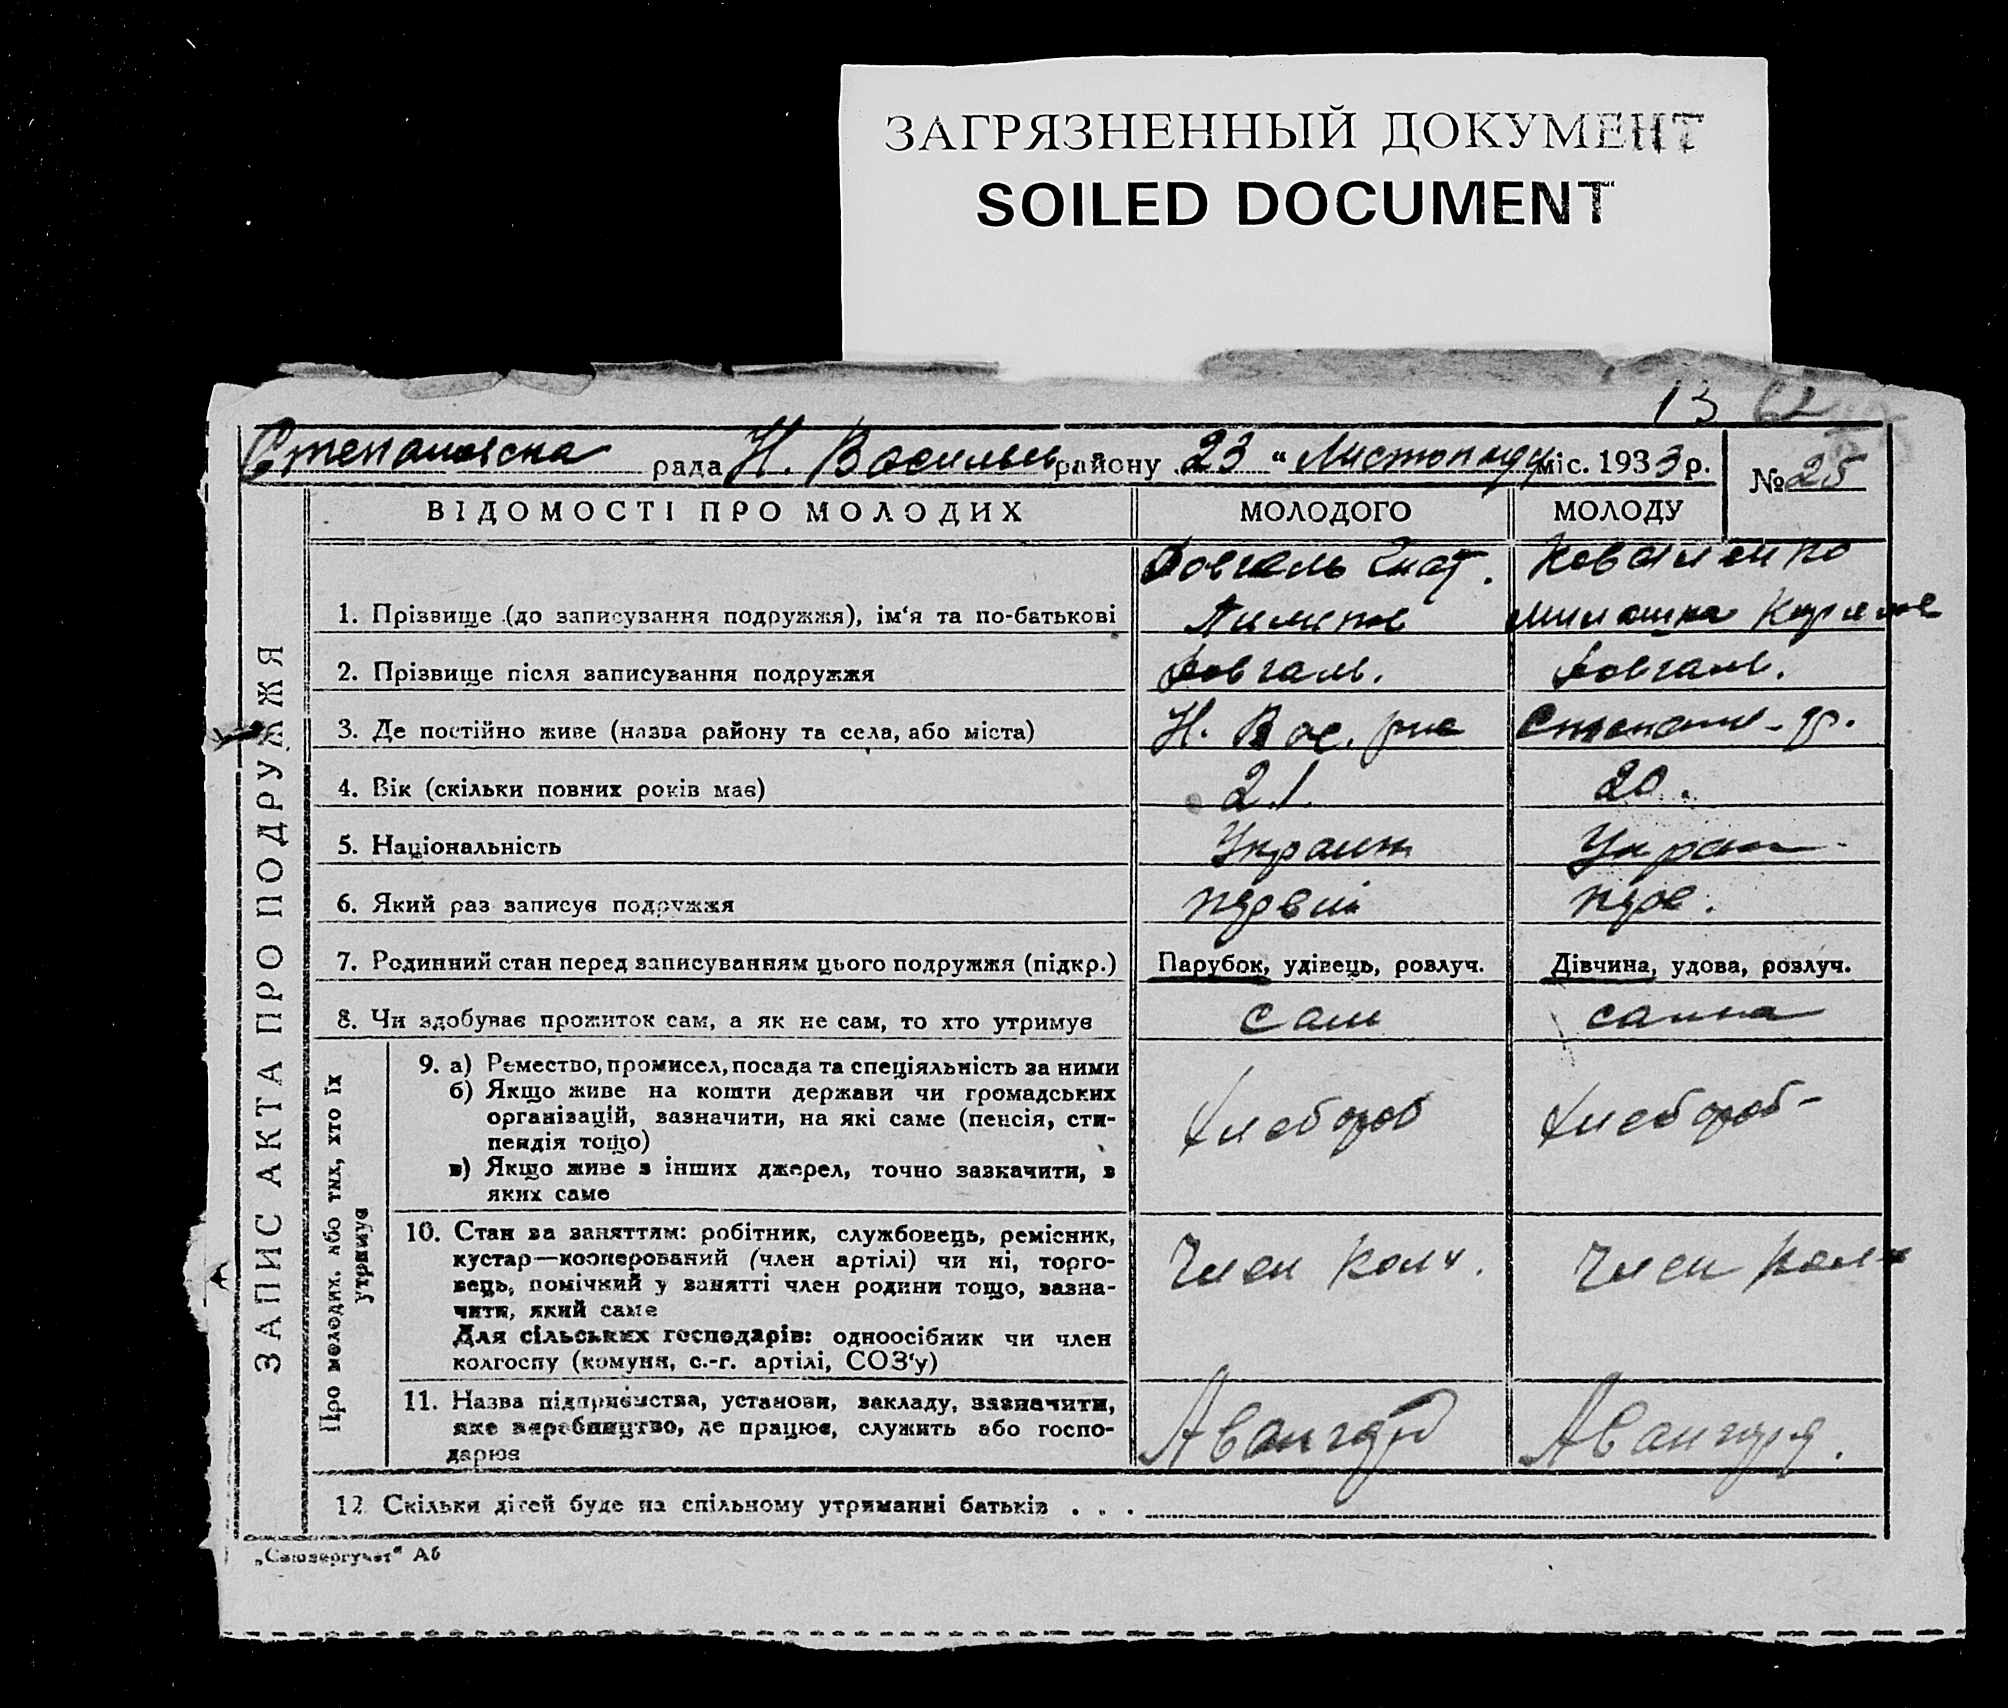 ЗАГРЯЗНЕННЫЙ ДОКУМЕНТ
SOILED DOCUMENT
13 62
Степановска рада Н. Васильев району 23 " Листопаду міс. 1933 р. № 25
ЗАПИС АКТА ПРО ПОДРУЖЖЯ
ВІДОМОСТІ ПРО МОЛОДИХ МОЛОДОГО МОЛОДУ
Довгаль Гнат. Коваленко
1. Прізвище (до записування подружжя), ім'я та по-батькові
2. Прізвище після записування подружжя Довгаль. Довгаль.
3. Де постійно живе (назва району та села, або міста) Н. Вас. рна
4. Вік (скільки повних років має) 21. 20.
5. Національність Украин Украин
6. Який раз записує подружжя первий перв.
7. Родинний стан перед записуванням цього подружжя (підкр.) Парубок, удівець, розлуч. Дівчина, удова, розлуч.
8. Чи здобуває прожиток сам, а як не сам, то хто утримує сам самма
Про молодих, або тих, хто їх
утримує
9. а) Ремество, промисел, посада та спеціяльність за ними
б) Якщо живе на кошти держави чи громадських
організацій, зазначити, на які саме (пенсія, сти-
пендія тощо)
в) Якщо живе з інших джерел, точно зазначити, з
яких саме
Хлебороб Хлебороб-
10. Стан за заняттям: робітник, службовець, ремісник,
кустар—кооперований (член артілі) чи ні, торго-
вець, помічний у занятті член родини тощо, зазна-
чити, який саме
Для сільських господарів: одноосібник чи член
колгоспу (комуни, с.-г. артілі, СОЗ'у)
Член колг. Член колг
11. Назва підприємства, установи, закладу, зазначити,
яке виробництво, де працює, служить або госпо-
дарює
Авангард Авангард.
12. Скільки дітей буде на спільному утриманні батьків . . .
„Союзоргучет" Аб